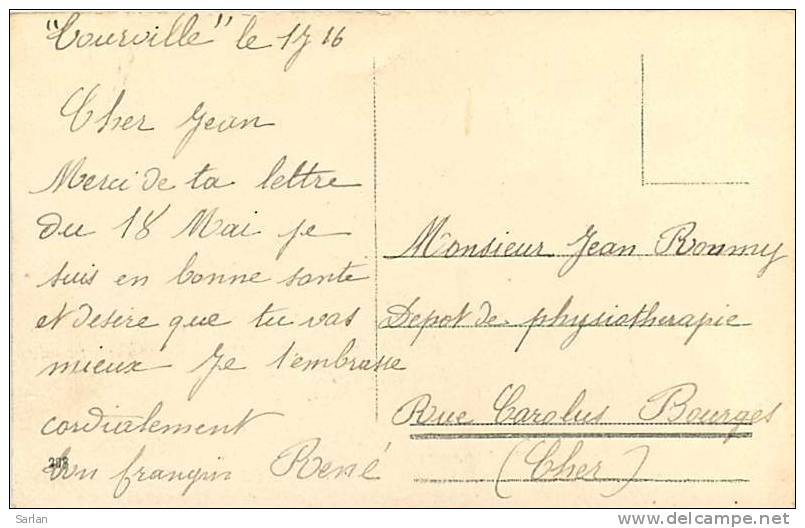 "Tourville" le 1 7 16
Cher Jean
Merci de ta lettre
du 18 Mai je
suis en bonne santé
et desire que tu vas
mieux Je t'embrasse
cordialement
Ton frangin René
308
Monsieur Jean Roumy
Depot de physiotherapie
Rue Carolus Bourges
(Cher)
Sarlan
delcampe.net